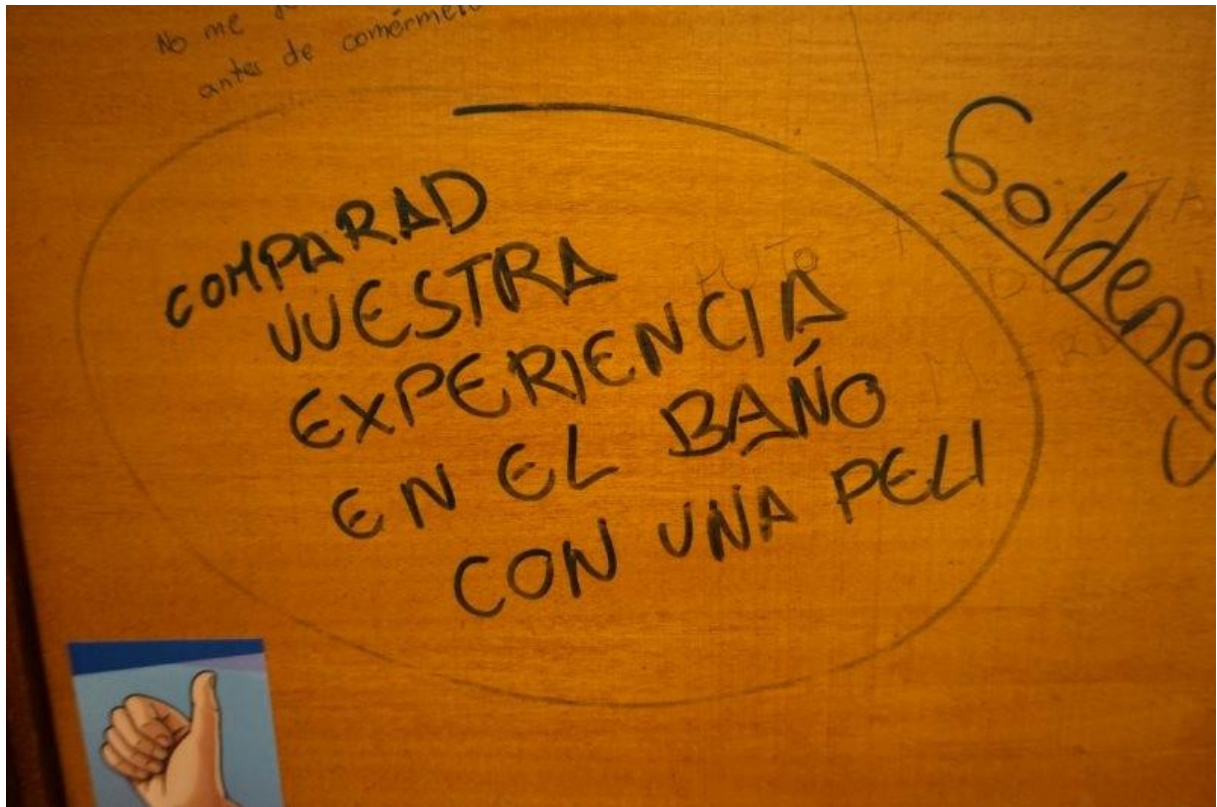 No me
antes de comérmelo
COMPARAD
VUESTRA
EXPERIENCIA
EN EL BAÑO
CON UNA PELI
PUTO